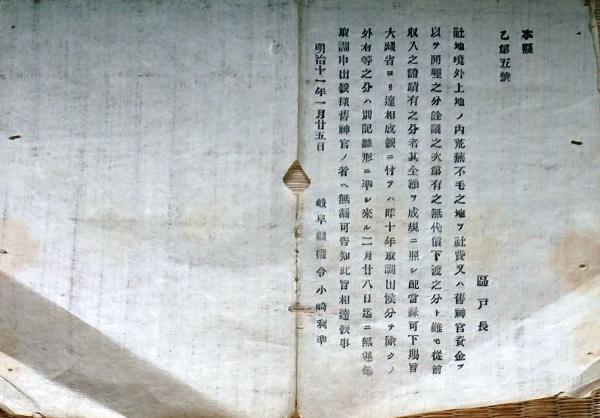 本縣
乙第五號
區戸長
社地境外上地ノ内荒蕪不毛之地ヲ社費又ハ舊神官資金ヲ
以テ開墾之分詮議之次第有之無代價下渡之分ト雖モ從前
収入之證蹟有之分者其全額ヲ成規ニ照シ配當祿可下賜旨
大藏省ヨリ達相成候ニ付テハ昨十年取調出候分ヲ除クノ
外右等之分ハ別記雛形ニ準シ來ル二月廿八日迄ニ無遲延
取調申出候様舊神官ノ者ヘ無漏可告知此旨相達候事
明治十一年一月廿五日
岐阜縣權令小崎利準